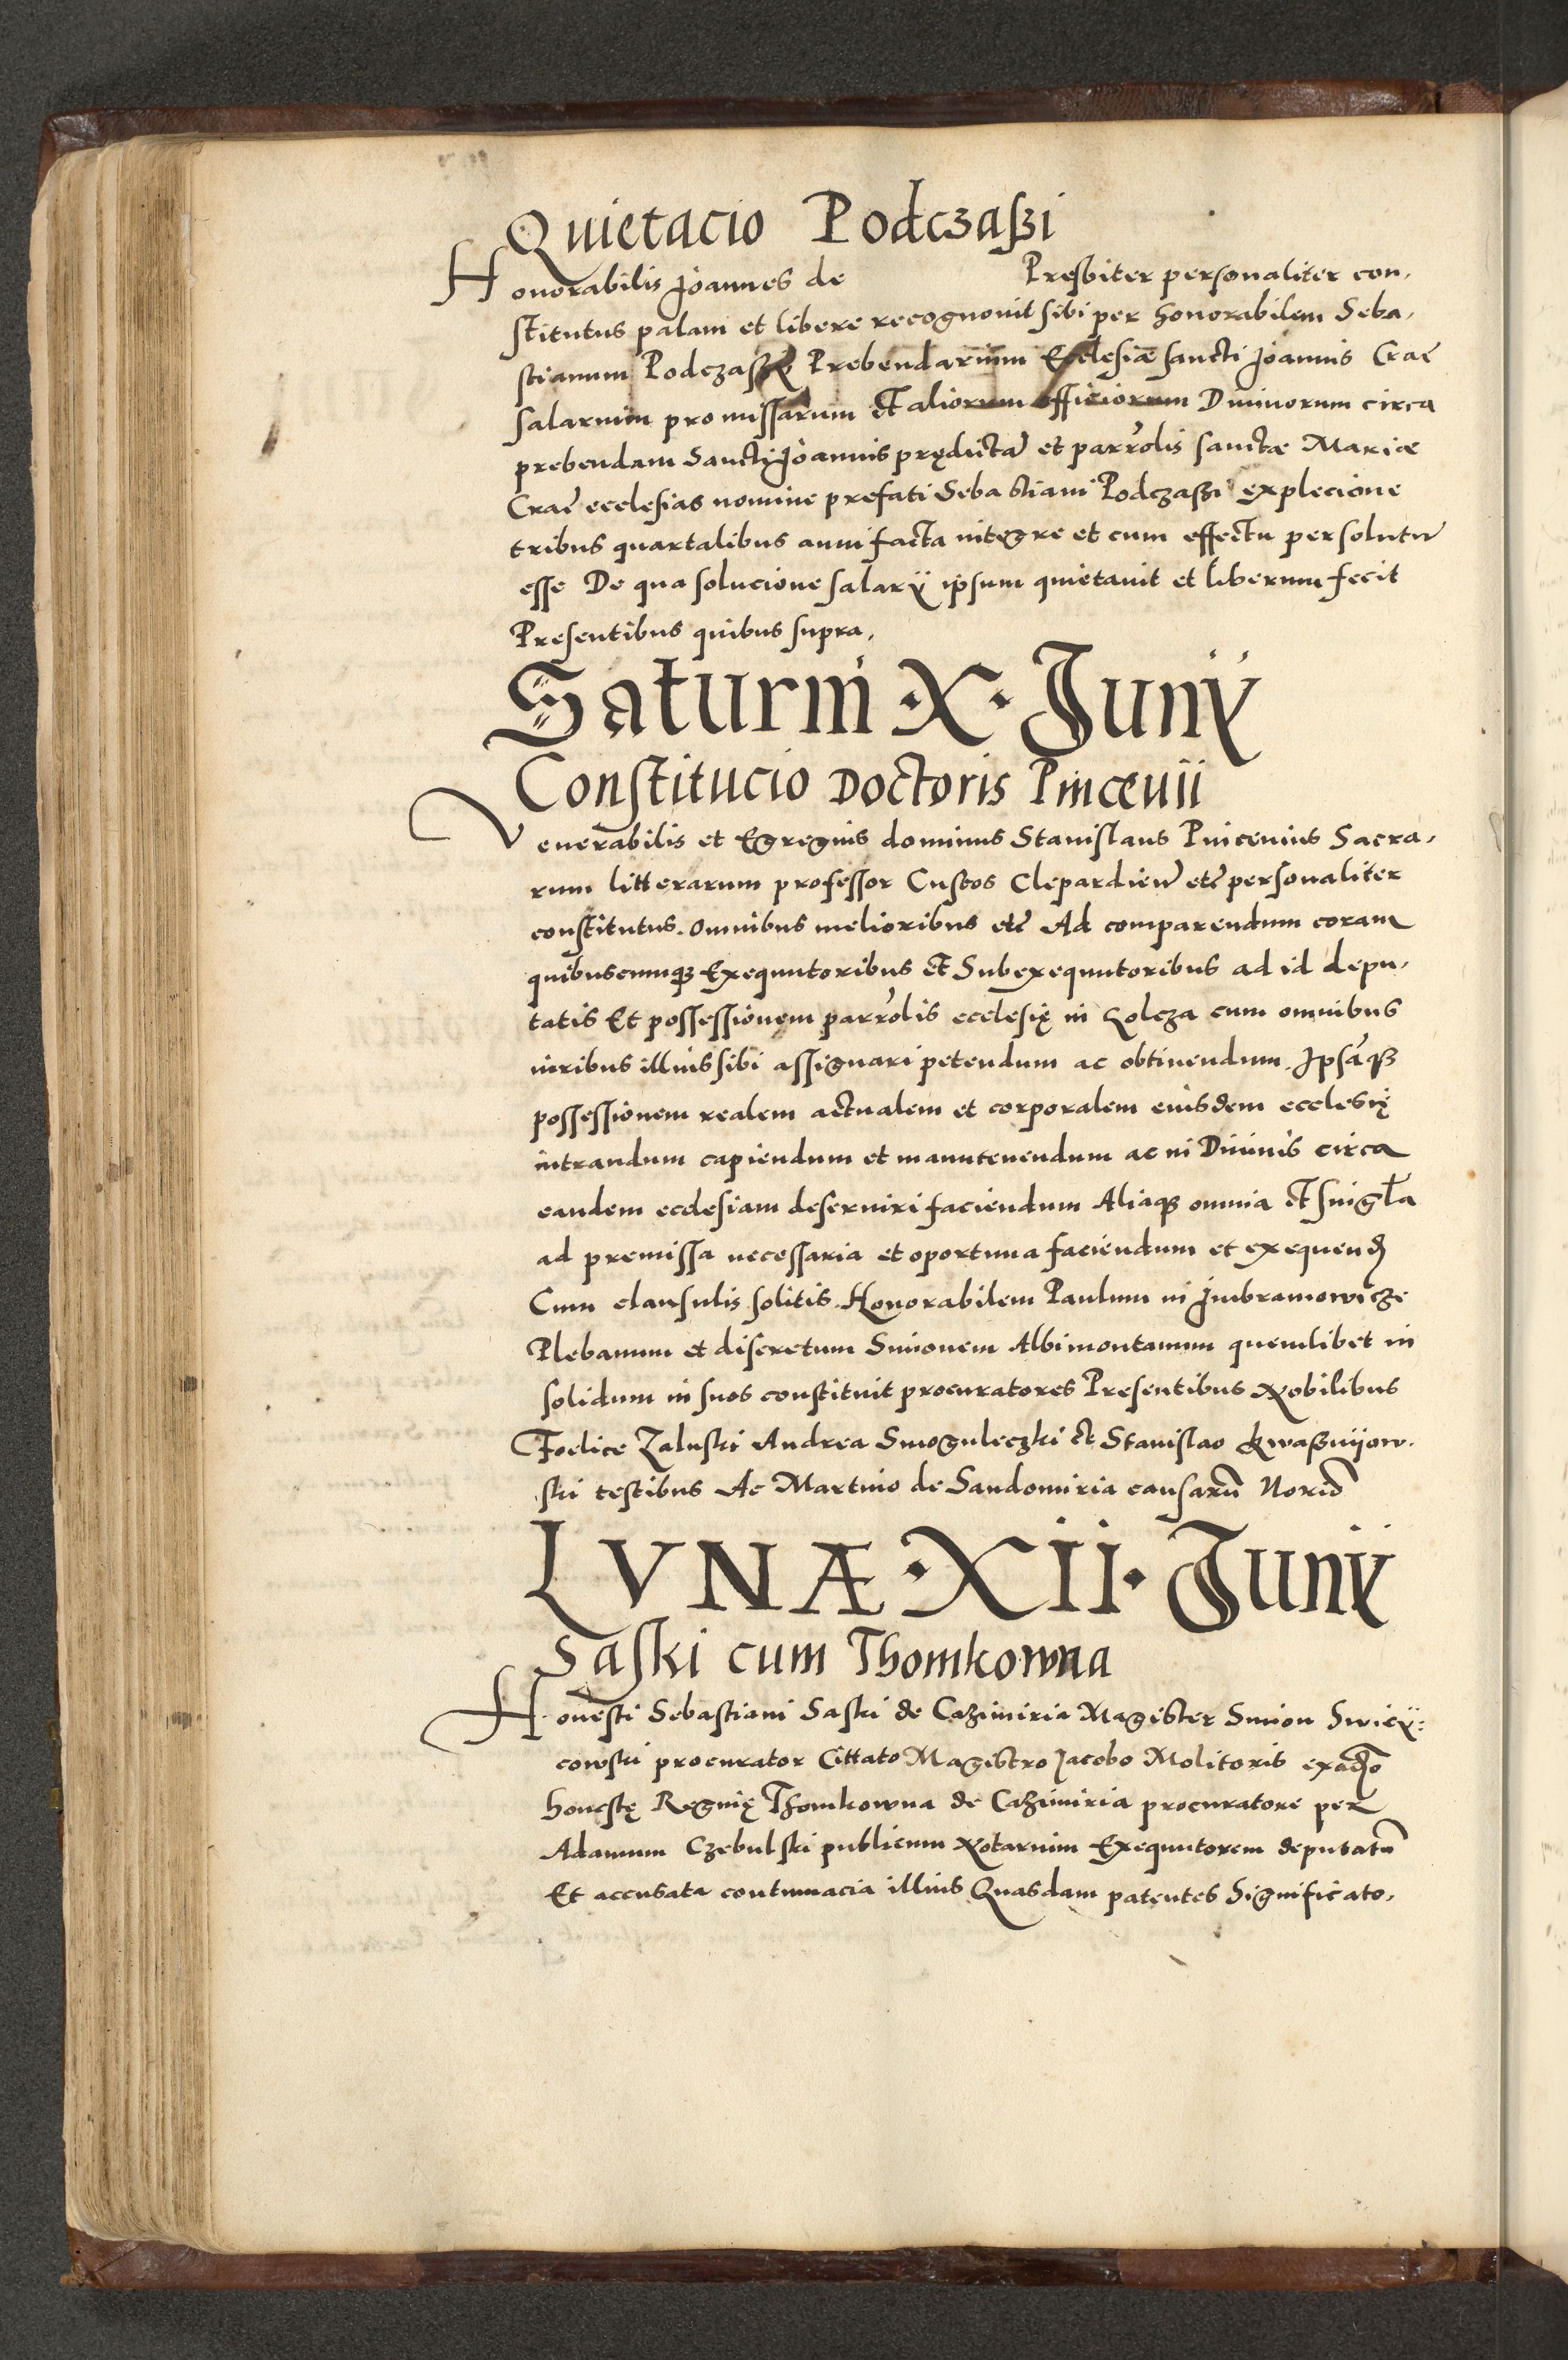 Quietacio Podczaßi
Honorabilis Joannes de Presbiter personaliter con,
stitutus palam et libere recognouit sibi per honorabilem Seba,
stianum Podczaßÿ Prebendarium Ecclesiæ sancti Joannis Crac̃
salarium pro missarum et aliorum officiorum Diuinorum circa
prebendam Sancti Joannis prędictã et parr̃olis sanctæ Mariæ
Crac̃ ecclesias nomine prefati Sebastiani Podczaßi explecione
tribus quartalibus anni facta integre et cum effectu persolutũ
esse De qua solucione salarÿ ipsum quietauit et liberum fecit
Presentibus quibus supra,
Saturni · X · Junÿ
Constitucio Doctoris Pinceuii
Venerabilis et Egregius dominus Stanislaus Pinceuius Sacra,
rum litterarum professor Custos Clepardień etc̃ personaliter
constitutus. omnibus melioribus etc̃ Ad comparendum coram
quibuscumqз Exequutoribus et Subexequutoribus ad id depu,
tatis Et possessionem parr̃olis ecclesię in Golcza cum omnibus
iuribus illius sibi assignari petendum ac obtinendum. Ipsãqз
possessionem realem actualem et corporalem eiusdem ecclesię
intrandum capiendum et manutenendum ac in Diuinis circa
eandem ecclesiam deseruiri faciendum Aliaqз omnia et singl̃a
ad premissa necessaria et oportuna faciendum et exequend̃
Cum clausulis solitis. Honorabilem Paulum in Jmbramowicze
Plebanum et discretum Simonem Albimontanum quemlibet in
solidum in suos constituit procuratores Presentibus Nobilibus
Foelice Zaluski Andrea Smoguleczki et Stanislao Kwaßnijow,
ski testibus Ac Martino de Sandomiria causarũ Norio
LVNÆ · XII · Junÿ
Saski cum Thomkowna
Honesti Sebastiani Saski de Cazimiria Magister Simon Swicÿ:
cowski procurator Cittato Magistro Jacobo Molitoris exad̃o
honestę Reginę Thomkowna de Cazimiria procuratore per
Adamum Czebulski publicum Notarium Exequutorem deputatũ
Et accusata contumacia illius Quasdam patentes Significato,